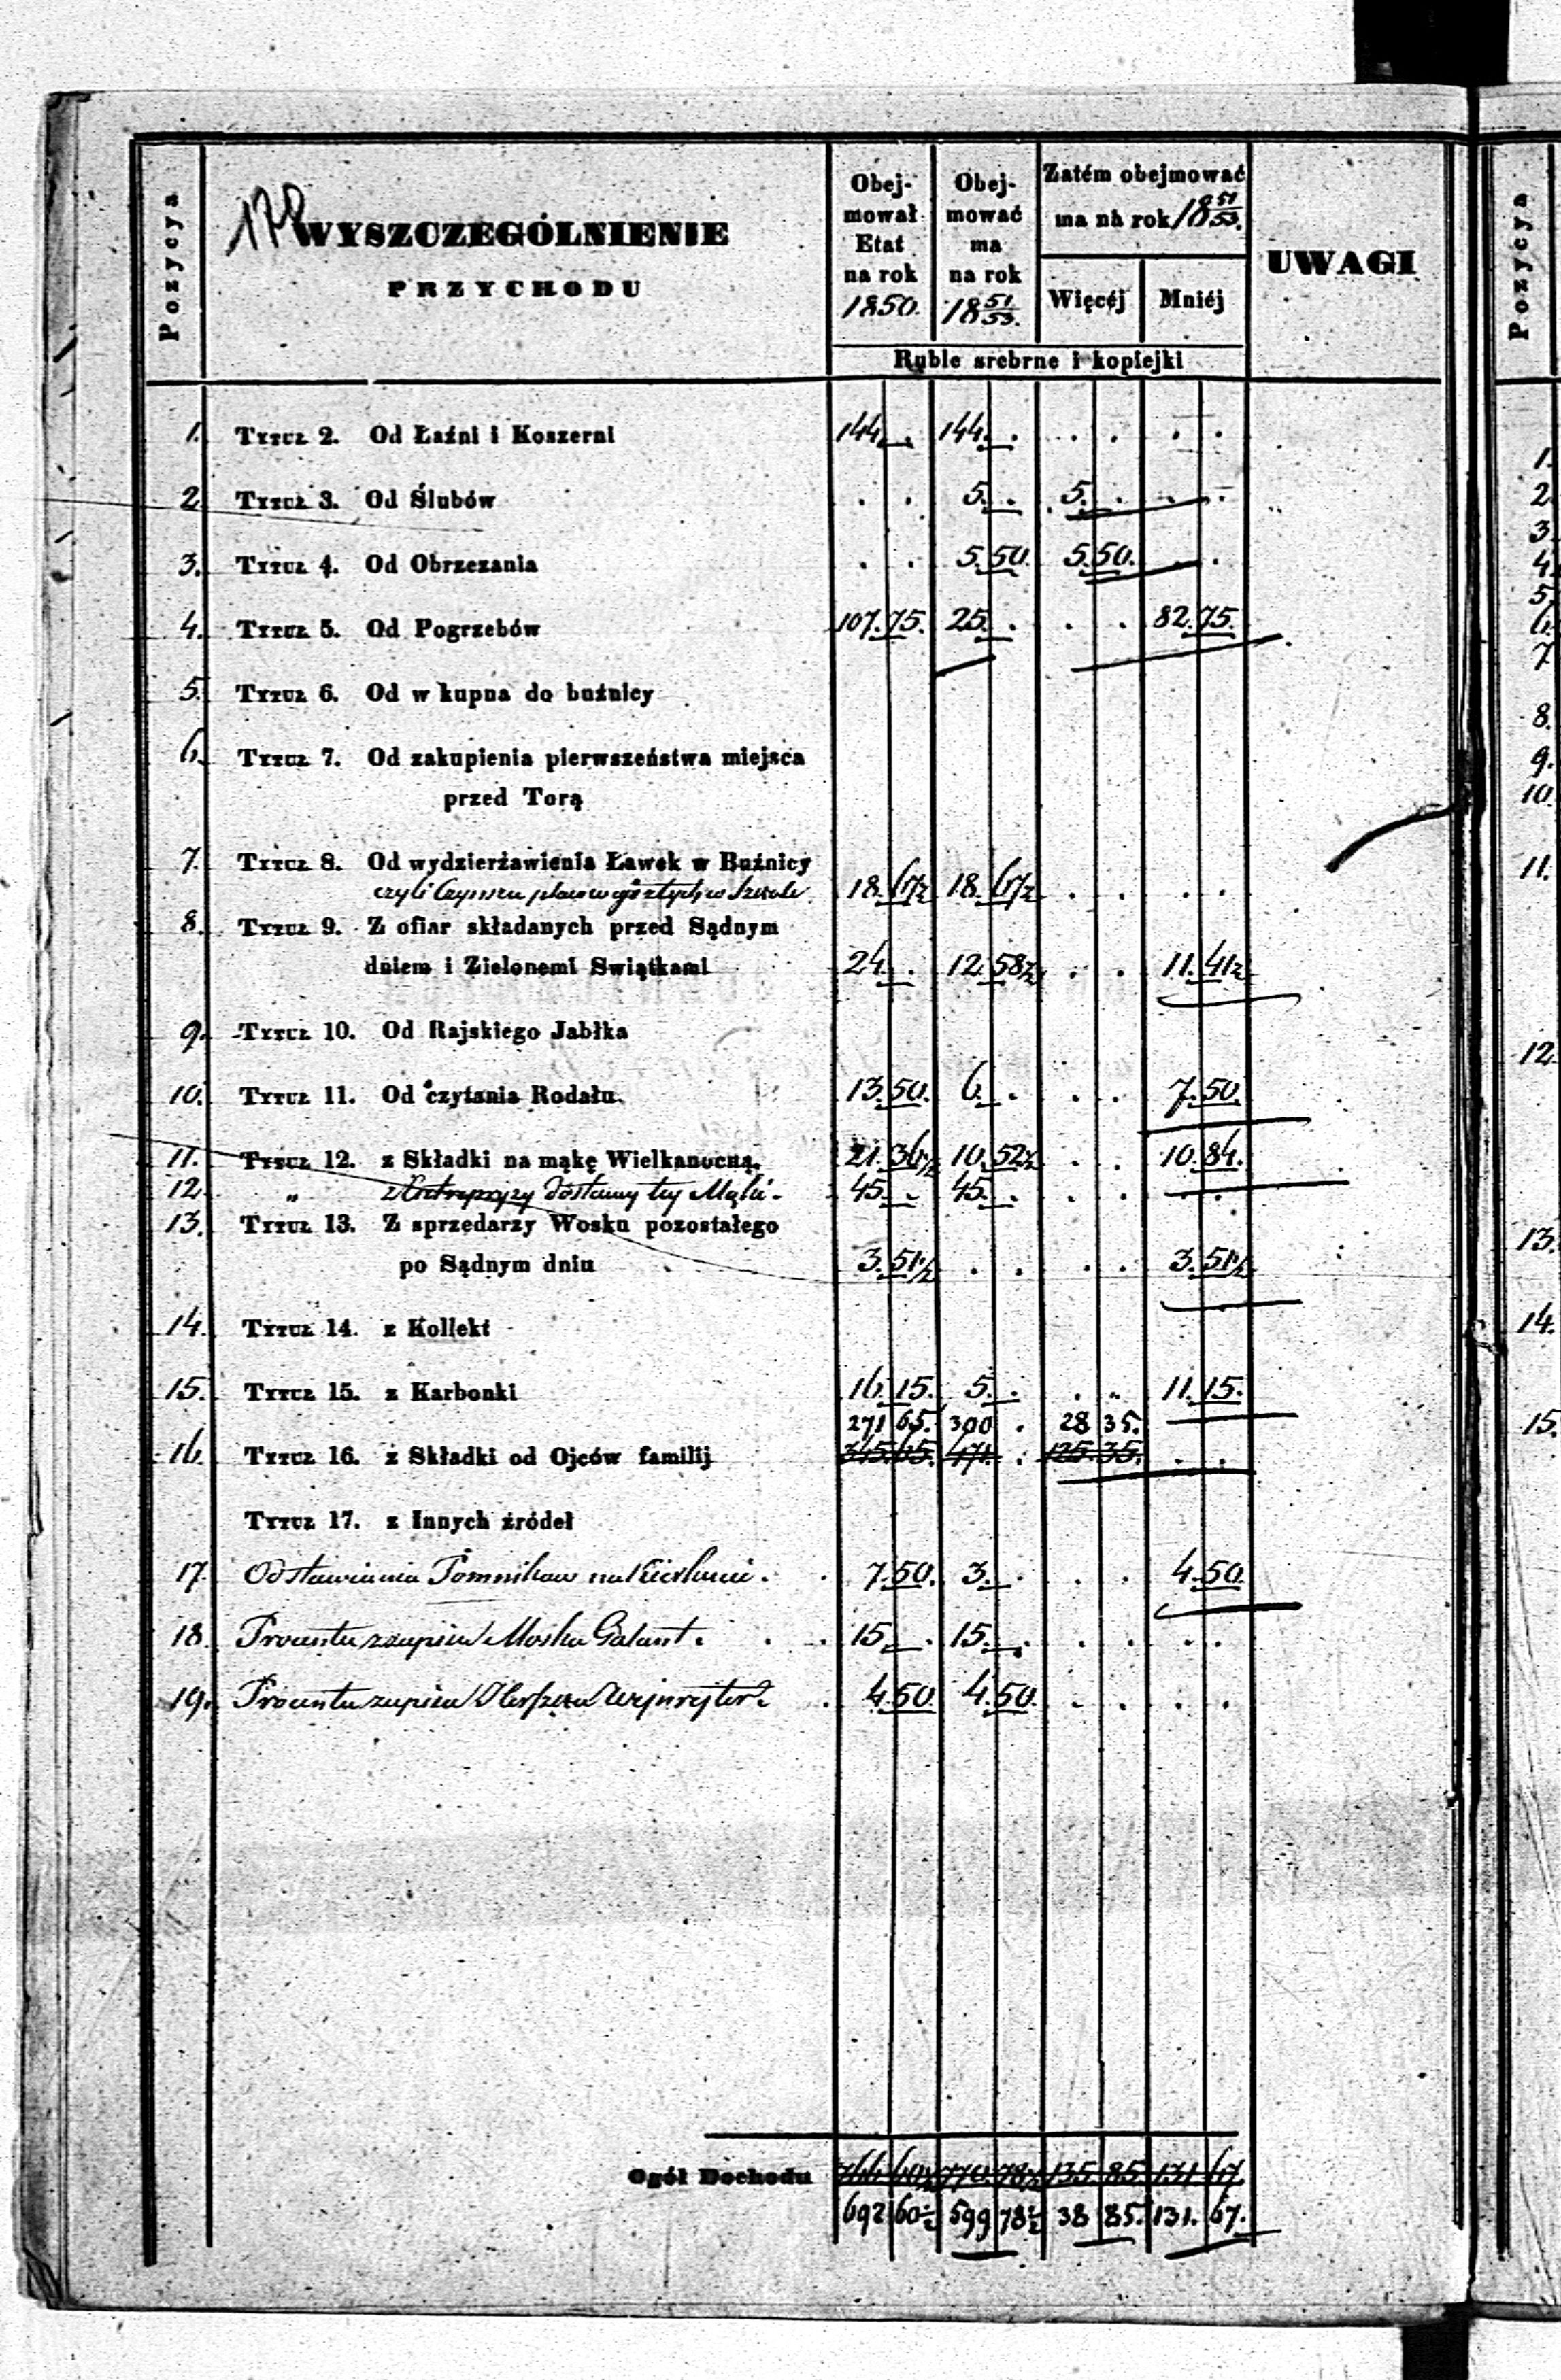 Pozycya
WYSZCZEGÓLNIENIE
PRZYCHODU
Obej-
mował
Etat
na rok
1850.
Obej-
mować
ma
na rok
18 51/53.
Zatém obejmować
ma na rok 18 51/53.
Więcéj Mniéj
UWAGI
Ruble srebrne i kopiejki
1. Tytuł 2. Od Łaźni i Koszerni 144 . 144 . . . . .
2 Tytuł 3. Od Ślubów . . 5 . 5. . . .
3. Tytuł 4. Od Obrzezania . . 5 50. 5 50. . .
4. Tytuł 5. Od Pogrzebów 107. 75. 25. . . . 82. 75.
5. Tytuł 6. Od w kupna do buźnicy
6. Tytuł 7. Od zakupienia pierwszeństwa miejsca
przed Torą
7. Tytuł 8. Od wydzierżawienia Ławek w Buźnicy
czyli Czynszu w Szkole 18. 6 1/2 18. 6 1/2 . . . .
8. Tytuł 9. Z ofiar składanych przed Sądnym
dniem i Zielonemi Swiątkami 24 . 12 58 1/2 . . 11. 41 1/2
9. Tytuł 10. Od Rajskiego Jabłka
10. Tytuł 11. Od czytania Rodału. 13 50. 6 . . . 7. 50.
11. Tytuł 12. z Składki na mąkę Wielkanocną. 21 36 1/2 10. 52 1/2 . . 10. 84.
12. „ z Entrepryzy dostawy tej Mąki. 45 . 45 . . . . .
13. Tytuł 13. Z sprzedarzy Wosku pozostałego
po Sądnym dniu 3. 51 1/2 . . . . 3. 51 1/2
14. Tytuł 14. z Kollekt
15. Tytuł 15. z Karbonki 16. 15. 5. . . „ 11. 15.
271 65. 300 . 28 35.
16. Tytuł 16. z Składki od Ojców familij 345 65. 471. . 125 35. . .
Tytuł 17. z Innych źródeł
17 Od stawiania Pomników na Kierkucie. 7. 50. 3. . . . 4. 50
18. Procentu zapisu Moska Galant. 15 . 15. . . . . .
19. Procentu zapisu Herszka 4 50 4. 50. . . . .
Ogół Dochodu 766 60 1/2 770 78 1/2 135 85 131 67.
692 60 1/2 599 78 1/2 38 85. 131. 67.
Pozycya
1.
2
3
4.
5.
6.
7
8.
9.
10.
11.
12.
13.
14.
15.